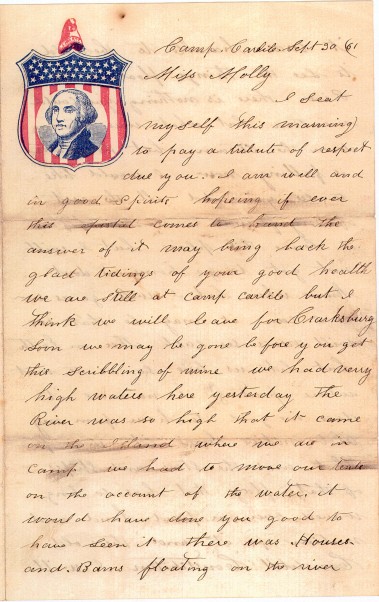 Camp. Carlile. Sept 30. (61
Miss Molly
I seat
myself this morning
to pay a tribute of respect
due you. I am well and
in good spirits hopeing if ever
this comes to hand the
answer of it may bring back the
glad tidings of your good health
we are still at camp carlile but I
think we will leave for Clarksburg
soon we may be gone before you get
this scribbling of mine we had verry
high waters here yesterday the
River was so high that it came
on the Island where we are in
camp we had to move our tents
on the account of the water. it
would have done you good to
have seen it there was Houses
and. Barns floating on the river